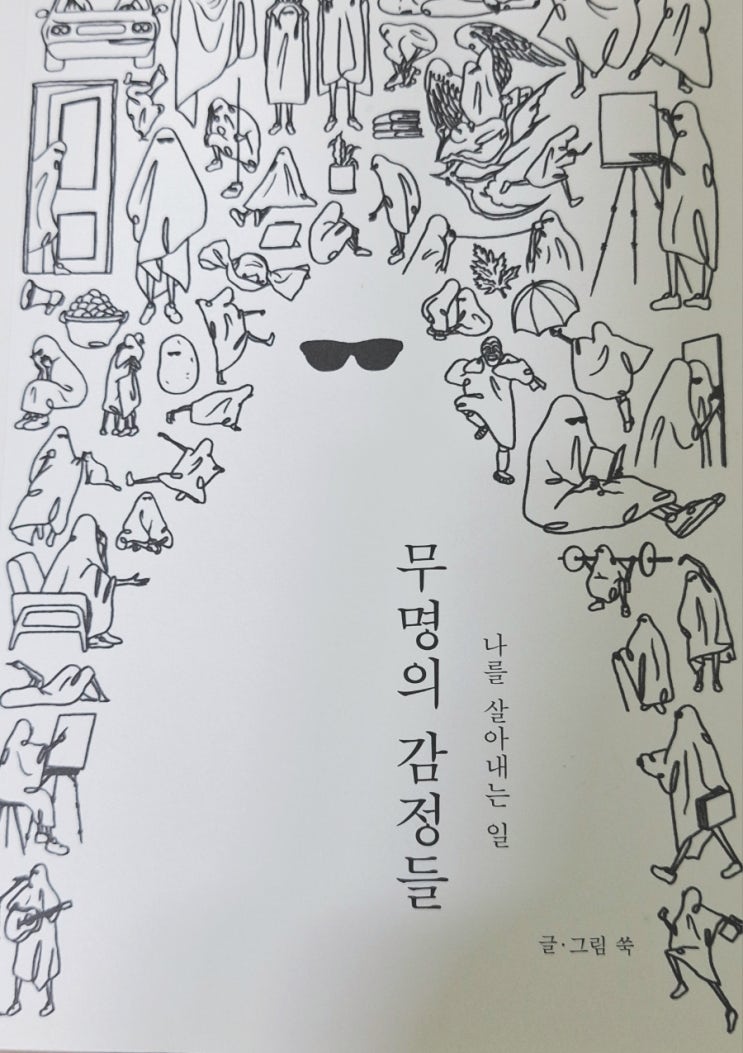 나를 살아내는 일
무명의 감정들
글·그림 쑥